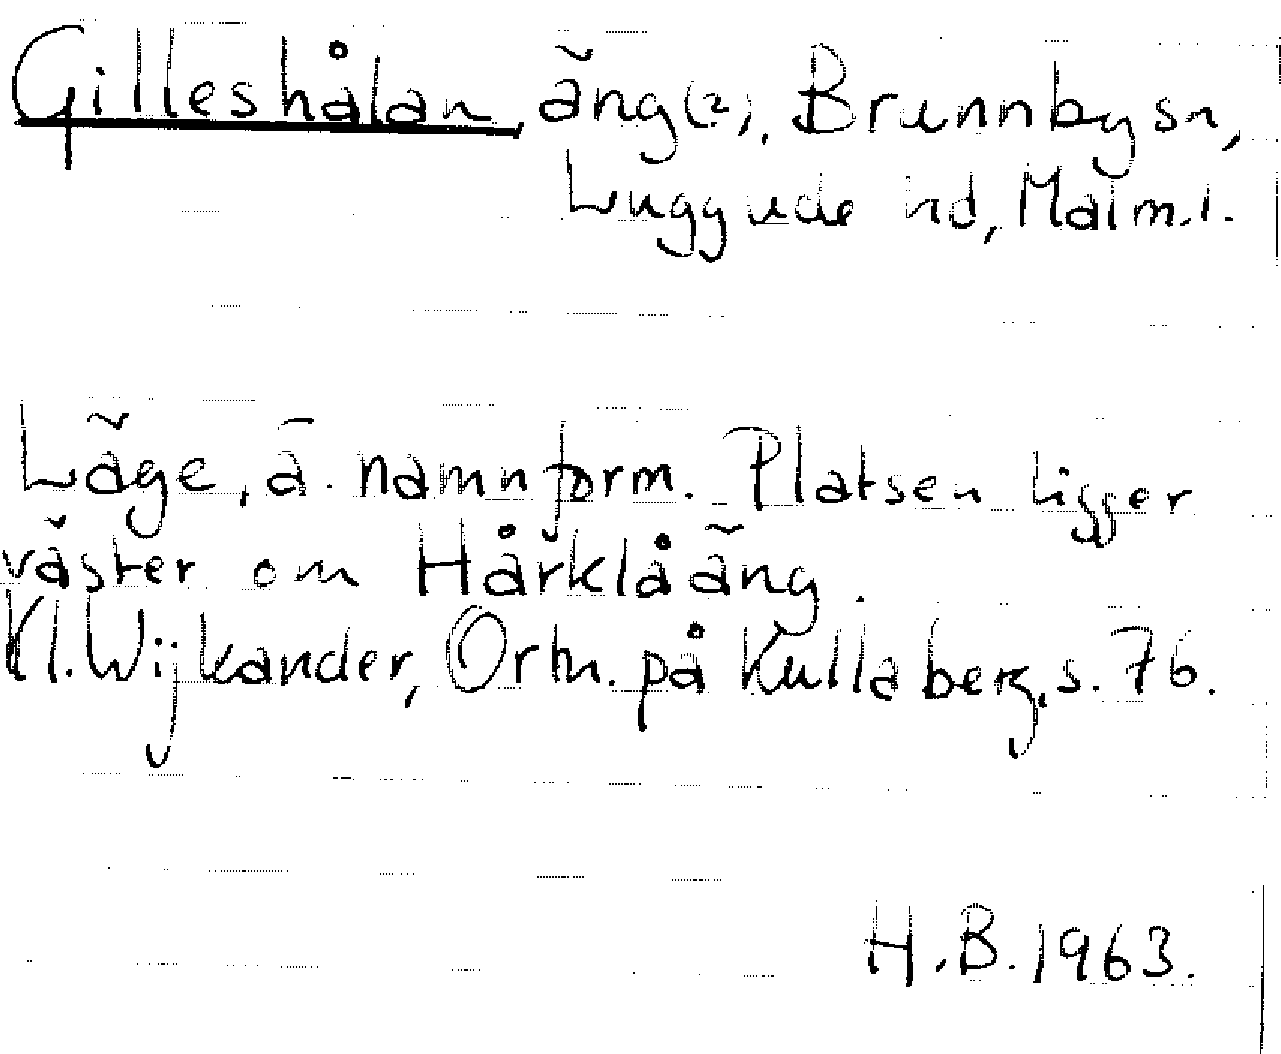 Gilleshålan, äng (?), Brunnby sn,
Luggude hd, Malm. l.
Läge, ä. namnform. Platsen ligger
väster om Hårklåäng.
Kl. Wijkander, Ortn. på Kullaberg, s. 76.
H.B. 1963.